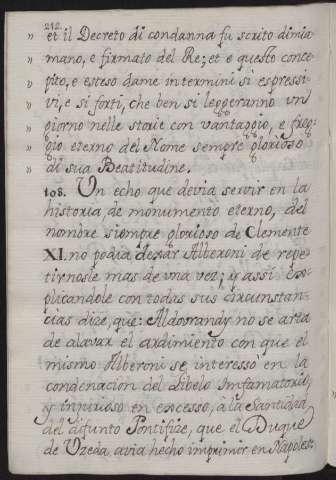 212.
» et il Decreto di condanna fu scrito dimia
» mano, e firmato del Re; et e questo conce
» pito, e esteso dame intermini si espressi
» vi, e si forti, che ben si leggeranno un
» giorno nelle storie con vantaggio, e freg
» gio eterno del Nome sempre glorioso
» di sua Beatitudine.
108. Un echo que devia servir en la
historia, de monumento eterno, del
nombre siempre glorioso de Clemente
XI. no podia dexar Alberoni de repe
tirnosle mas de una vez; y assi ex
plicandole con todas sus circunstan
cias dize, que: Aldobrandy no se area
de alavar el ardimiento con que el
mismo Alberoni se interessó en la
condenacion del Libelo Imfamatorio,
y injurioso en excesso, à la Santidad
del difunto Pontifize, que el Duque
de Uzeda, avia hecho imprimir en Napoles: